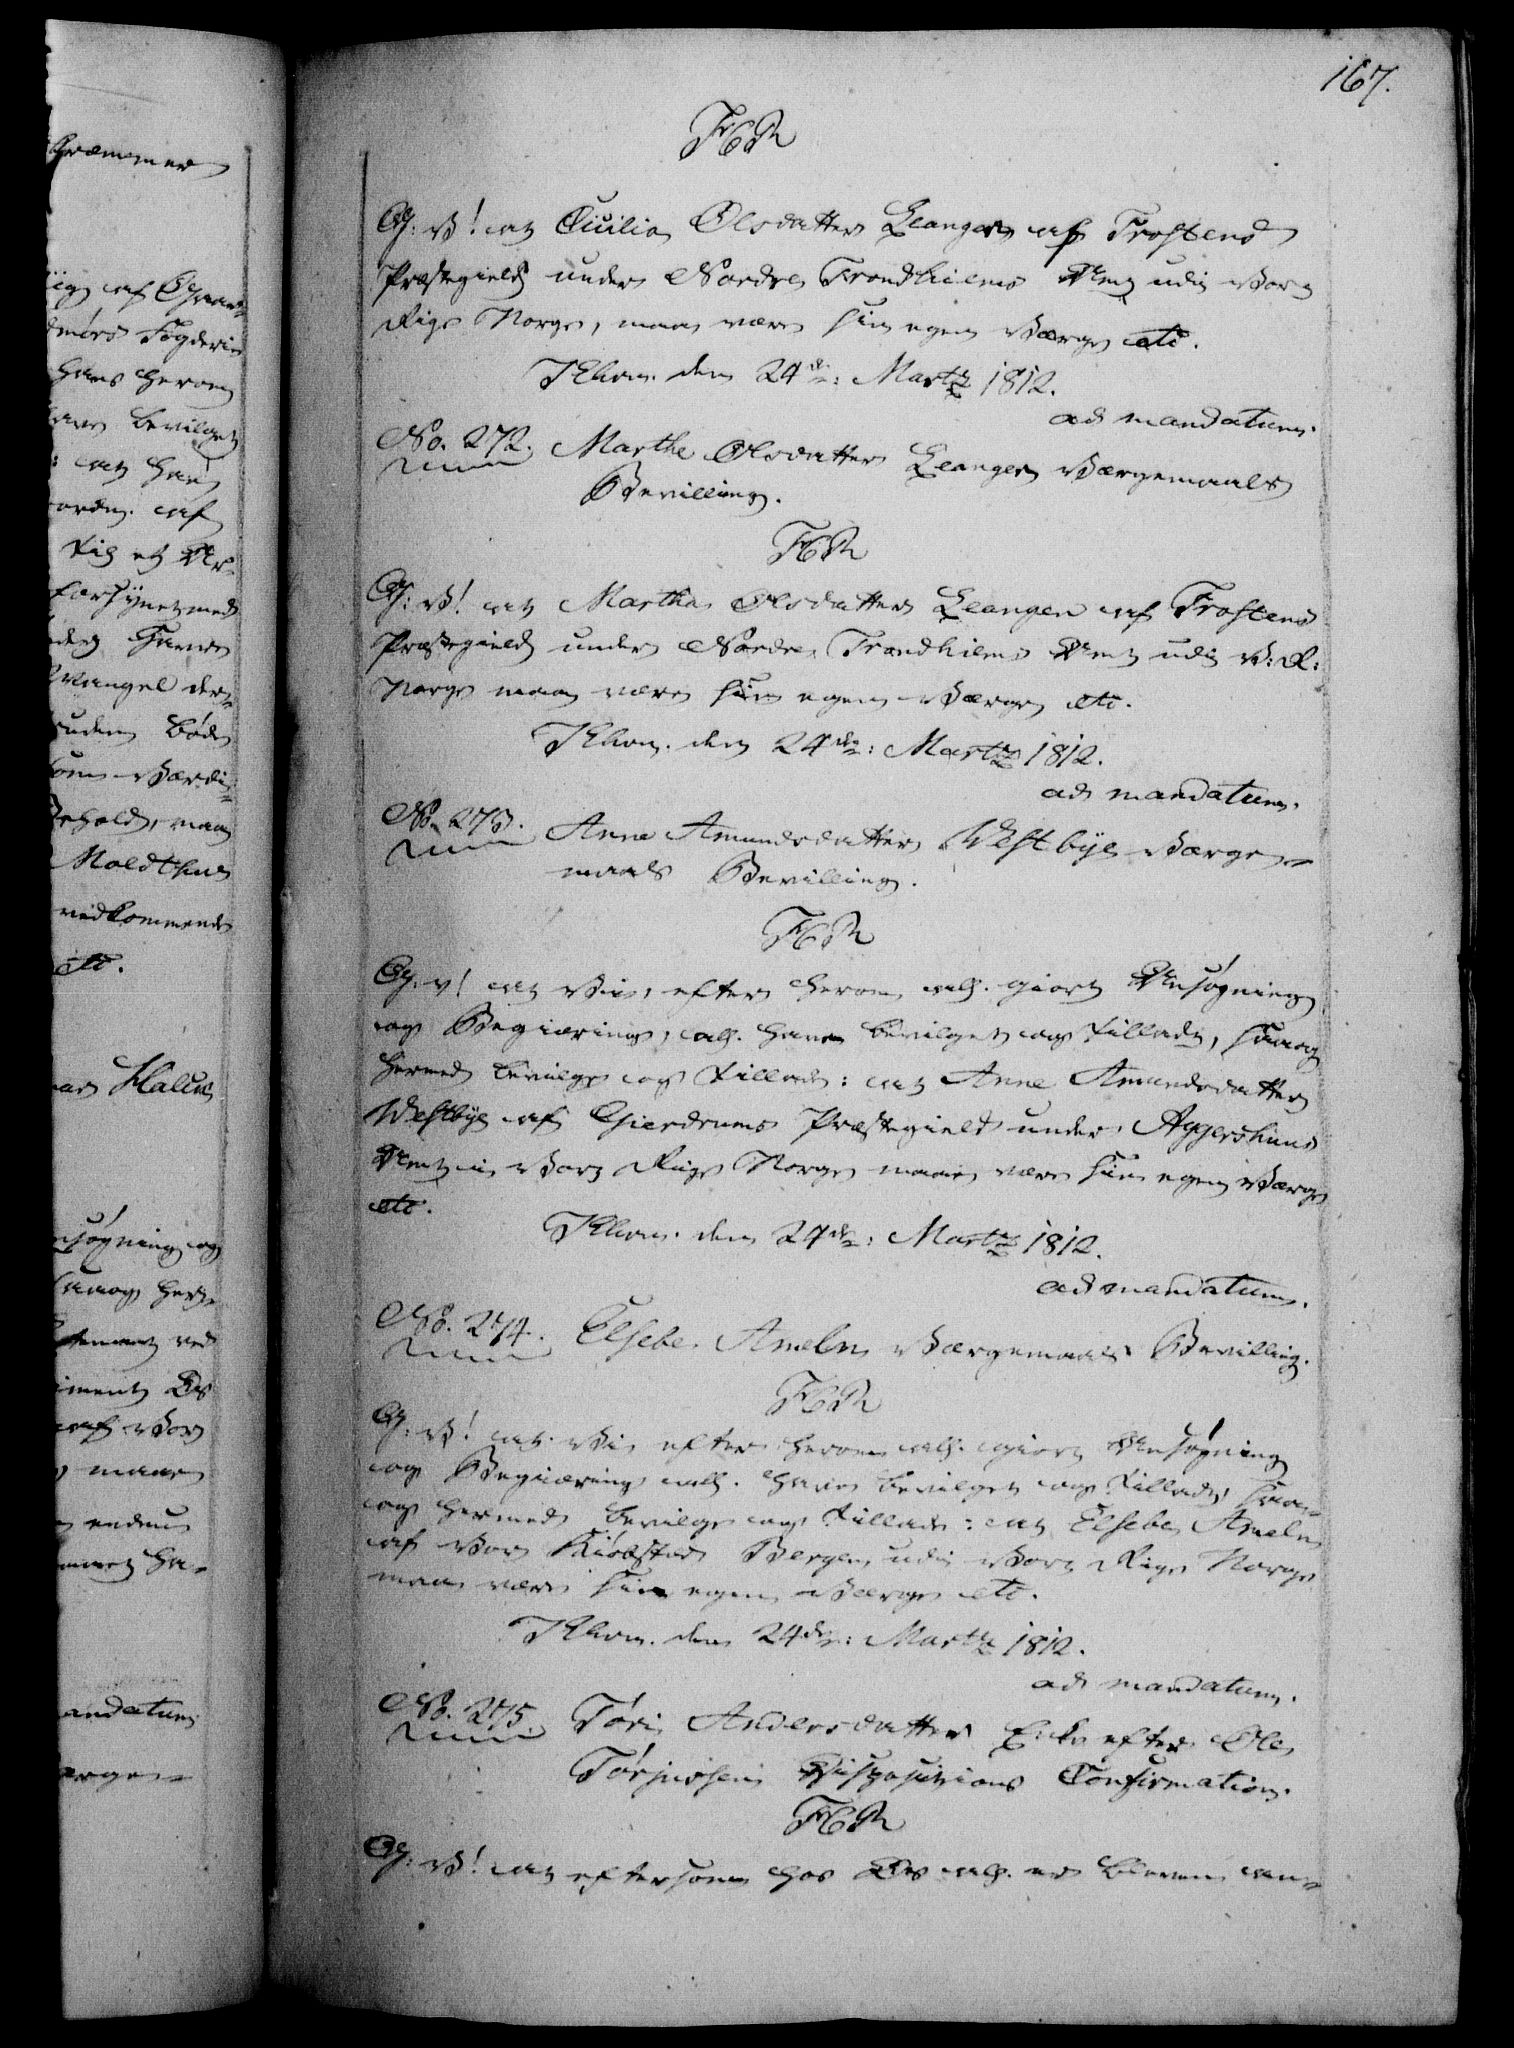 167.
F6R
G: V! at Cicilia Olsdatter Leangen af Frostens
Præstegield under Nordre Trondhiems Amt udi Vort
Rige Norge, maa være sin egen Værge etc.
Khavn. den 24de: Martz 1812.
ad mandatum.
No. 272. Marthe Olsdatter Leangen Værgemaals
Bevilling.
F6R
G: V! at Marthe Olsdatter Leangen af Frostens
Præstegield under Nordre Trondhiems Amt udi V: R:
Norge maa være sin egen Værge etc.
Khavn. den 24de: Martz 1812.
ad mandatum.
No. 273. Anne Amundsdatter Westbye Værge-
maals Bevilling.
F6R
G: V! at Vi, efter herom all. giort Ansøgning
og Begiæring, all. have bevilget og tilladt, saa og
hermed bevilge og tillade: at Anne Amundsdatter
Westbye af Gierdrums Præstegield under Aggershuus
Amt i Vort Rige Norge maa være sin egen Værge
etc.
Khavn. den 24de: Martz 1812.
ad mandatum.
No. 274. Elsebe Ameln Værgemaals Bevilling.
F6R
G: V! at Vi efter herom all. giort Ansøgning
og Begiæring all. have bevilget og tilladt, saa
og hermed bevilge og tillade: at Elsebe Ameln
af Vor Kiøbstæd Bergen, udi Vort Rige Norge
maa være sin egen Værge etc.
Khavn. den 24de: Martz 1812.
ad mandatum.
No. 275. Tøri Andersdatter Enke efter Ole
Torjussen Dispositions Confirmation.
F6R
G: V! at eftersom hos Os all. er bleven an-